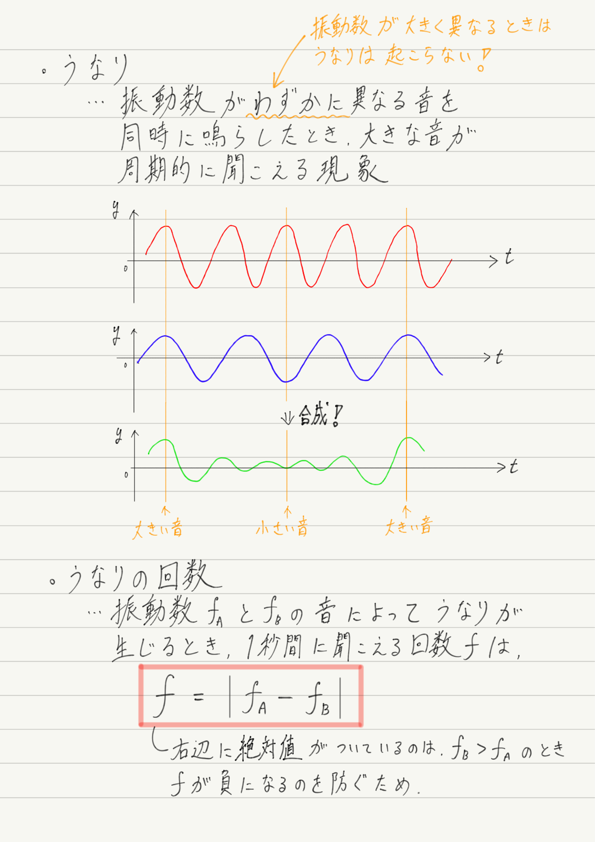 振動数が大きく異なるときは
うなりは起こらない！
・うなり
… 振動数がわずかに異なる音を
同時に鳴らしたとき、大きな音が
周期的に聞こえる現象
y
0
t
y
0
t
⇓ 合成！
y
0
t
↑ ↑ ↑
大きい音 小さい音 大きい音
・うなりの回数
… 振動数 fA と fB の音によってうなりが
生じるとき、1秒間に聞こえる回数 f は、
f = | fA − fB |
右辺に絶対値がついているのは、fB > fA のとき
f が負になるのを防ぐため.